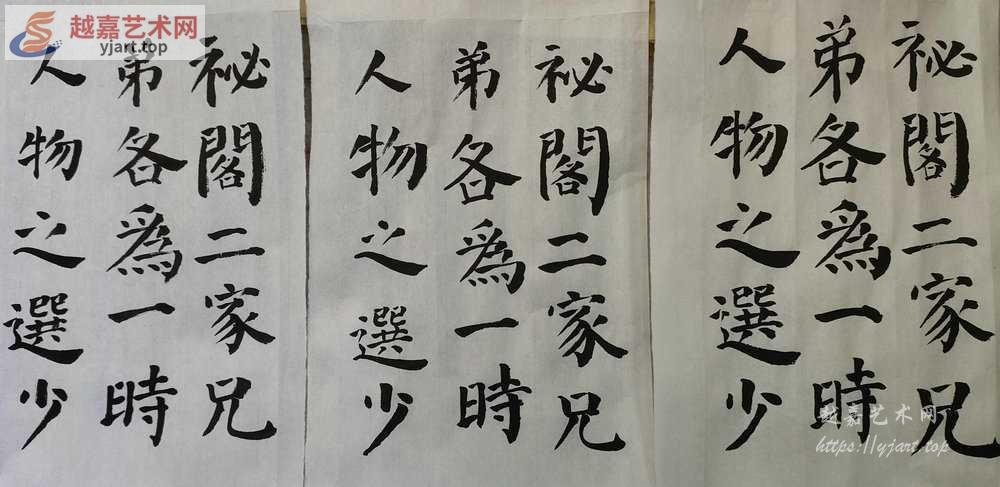 越嘉艺术网
yjart.top
祕閣二家兄
弟各為一時
人物之選少
祕閣二家兄
弟各為一時
人物之選少
祕閣二家兄
弟各為一時
人物之選少
越嘉艺术网
https://yjart.top